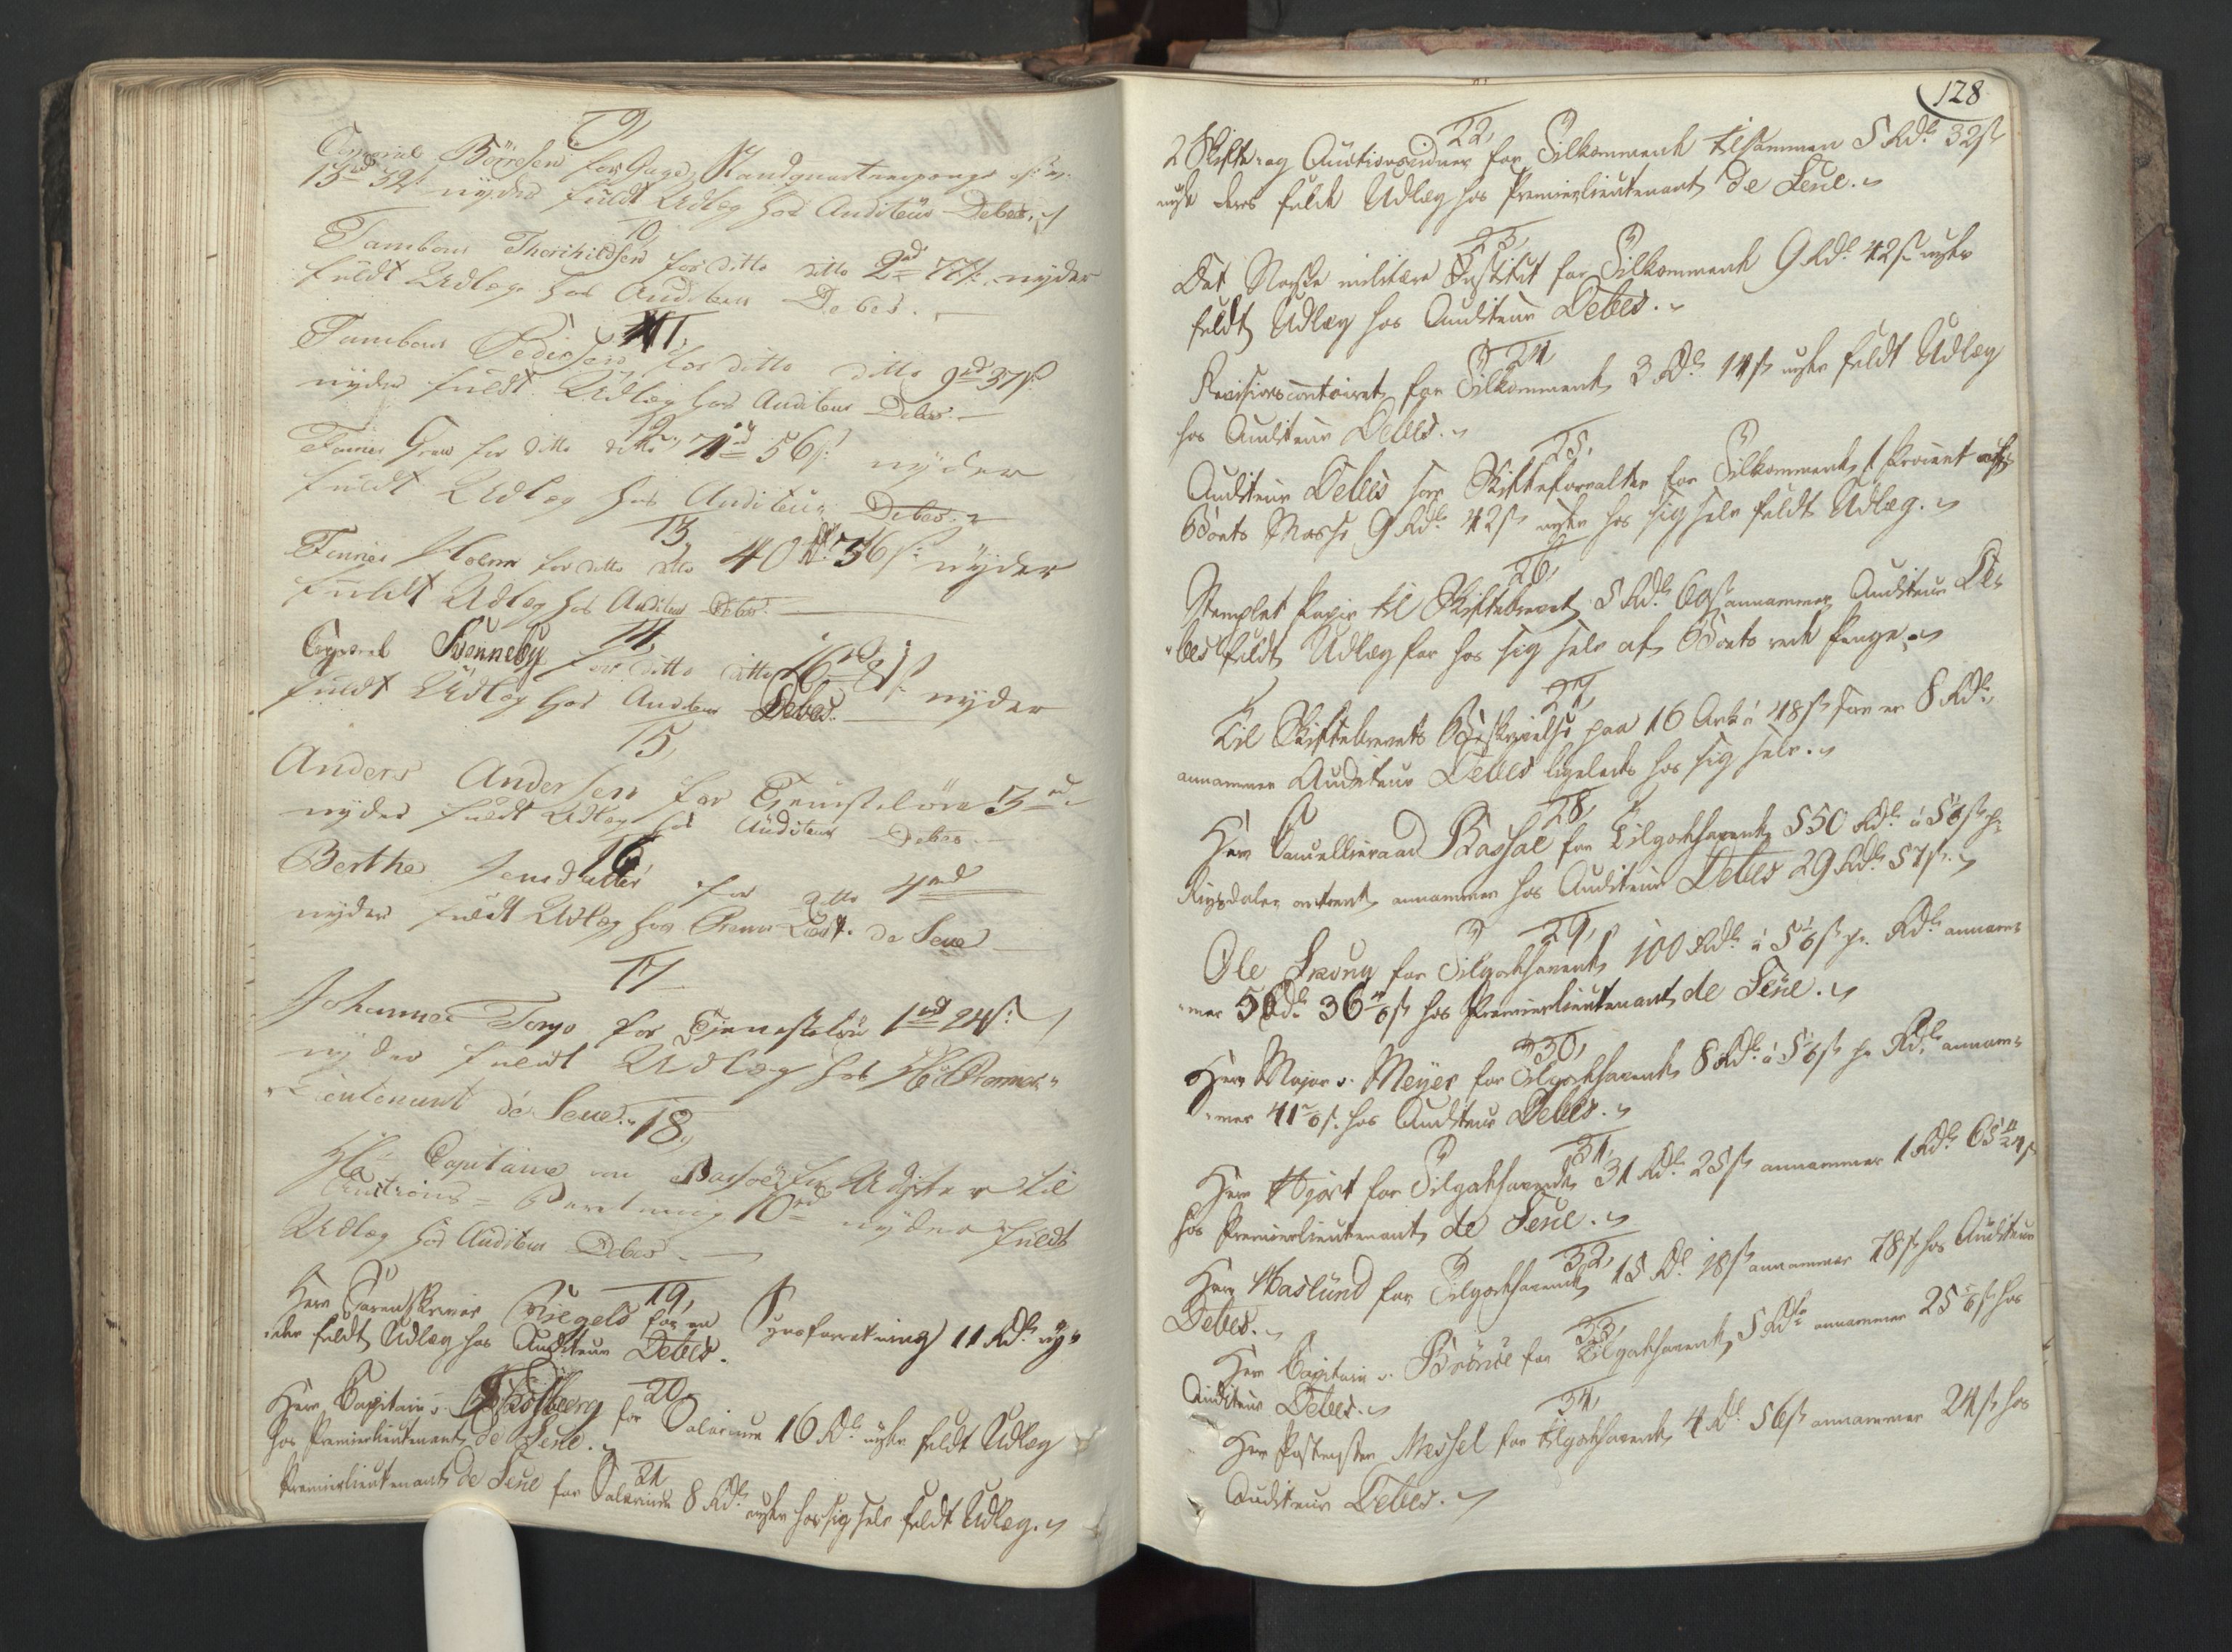 9,
Börresen for Gage,
13 rd 32 s: nyder fuldt Udlæg hos Auditeur Debes.
10,
Tambour Thorchildsen for ditto ditto 2 rd 77 s: nyder
fuldt Udlæg hos Auditeur Debes.
11,
Tambour Pedersen for ditto ditto 9 rd 37 s:
nyder fuldt Udlæg hos Auditeur Debes.
12,
for ditto ditto 71 rd 56 s: nyder
fuldt Udlæg hos Auditeur Debes.
13,
Holm for ditto ditto 40 Rd 36 s: nyder
fuldt Udlæg hos Auditeur Debes.
14,
Svenneby for ditto ditto nyder
fuldt Udlæg hos Auditeur Debes.
15,
Anders Andersen for Tienesteløn 3 rd
nyder fuldt Udlæg hos Auditeur Debes.
16,
Berthe Jensdatter for ditto 4 rd
nyder fuldt Udlæg hos Premr Lieut. de Seue
17
Johannes for Tieneste 1 rd 24 s:
nyder fuldt Udlæg hos Hr Premier-
Lieutenant de Seue.
18,
Hr Capitaine von for Udgivter til
Auctions-Forretning 10 rd nyder fuldt
Udlæg hos Auditeur Debes
19,
Herr Sorenskriver Niegels for en Synsforretning 11 Rdl ny-
der fuldt Udlæg hos Auditeur Debes.
20,
Herr Capitain v. for Salarium 16 Rdl nyder fuldt Udlæg
hos Premierlieutenant de Seue.
21
Premierlieutenant de Seue for Salarium 8 Rdl nyder hos sig selv fuldt Udlæg.
128
22,
2 Skifte- og Auctionsvidner for Tilkommende tilsammen 5 Rdl 32 s
nyde deres fulde Udlæg hos Premierlieutenant de Seue.
23,
Det Norske militære Institut for Tilkommende 9 Rdl 42 s nyder
fuldt Udlæg hos Auditeur Debes.
24,
Revisionscontoiret for Tilkommende 3 Rdl 14 s nyder fuldt Udlæg
hos Auditeur Debes.
25,
Auditeur Debes som Skifteforvalter for Tilkommende 1 Procent af
Boets Masse 9 Rdl 42 s nyder hos sig selv fuldt Udlæg.
26,
Stemplet Papir til Skiftebrevet 5 Rdl 69 s annammer Auditeur De-
bes fuldt Udlæg for hos sig selv af Boets rede Penge.
27,
Til Skiftebrevets Beskrivelse paa 16 Ark á 48 s som er 8 Rdl,
annammer Auditeur Debes ligeledes hos sig selv.
28,
Herr Cancellieraad Bassøe for Tilgodehavende 550 Rdl á 5 1/6 s pr
Rigsdaler omtrent annammer hos Auditeur Debes 29 Rdl 57 s.
29,
Ole for Tilgodehavende 100 Rdl á 5 1/6 s pr. Rdl annam-
mer 5 Rdl 36 4/6 s hos Premierlieutenant de Seue.
30,
Herr Major v. Meyer for Tilgodehavende 8 Rdl á 5 1/6 s pr Rdl annam-
mer 41 2/6 s. hos Auditeur Debes.
31,
Herr Hjort for Tilgodehavende 31 Rdl 25 s annammer 1 Rdl
hos Premierlieutenant de Seue.
32,
Herr Haslund for Tilgodehavende 15 Rdl 18 s annammer 78 s hos Auditeur
Debes.
33,
Herr Capitain v. for Tilgodehavende 5 Rdl annammer 25 5/6 s hos
Auditeur Debes.
34,
Herr Postmester Messel for tilgodehavende 4 Rdl 56 s annammer 24 s hos
Auditeur Debes.